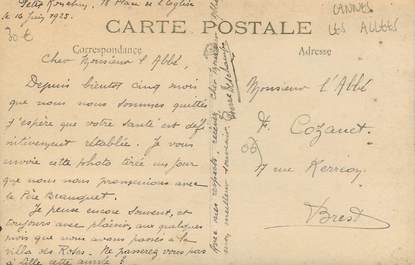 18 Place de l'Eglise
le 14 juin 1923.
30€
CANNES
LES ALLEES
CARTE POSTALE
Correspondance
Adresse
Cher Monsieur l'Abbé,
Depuis bientôt cinq mois
que nous nous sommes quittés
j'espère que votre santé est déf-
initivement rétablie. Je vous
envoie cette photo tirée un jour
que nous nous promenions avec
le Père Beauquet.
Je pense encore souvent, et
toujours avec plaisir, aux quelques
mois que nous avons passés à la
villa des Roses. Ne passerez vous pas
à Lille cette année ?
Avec mes respects, recevez, cher Monsieur l'Abbé,
mon meilleur souvenir.
Monsieur l'Abbé
F. Cozanet
7 rue Kerrien
Brest